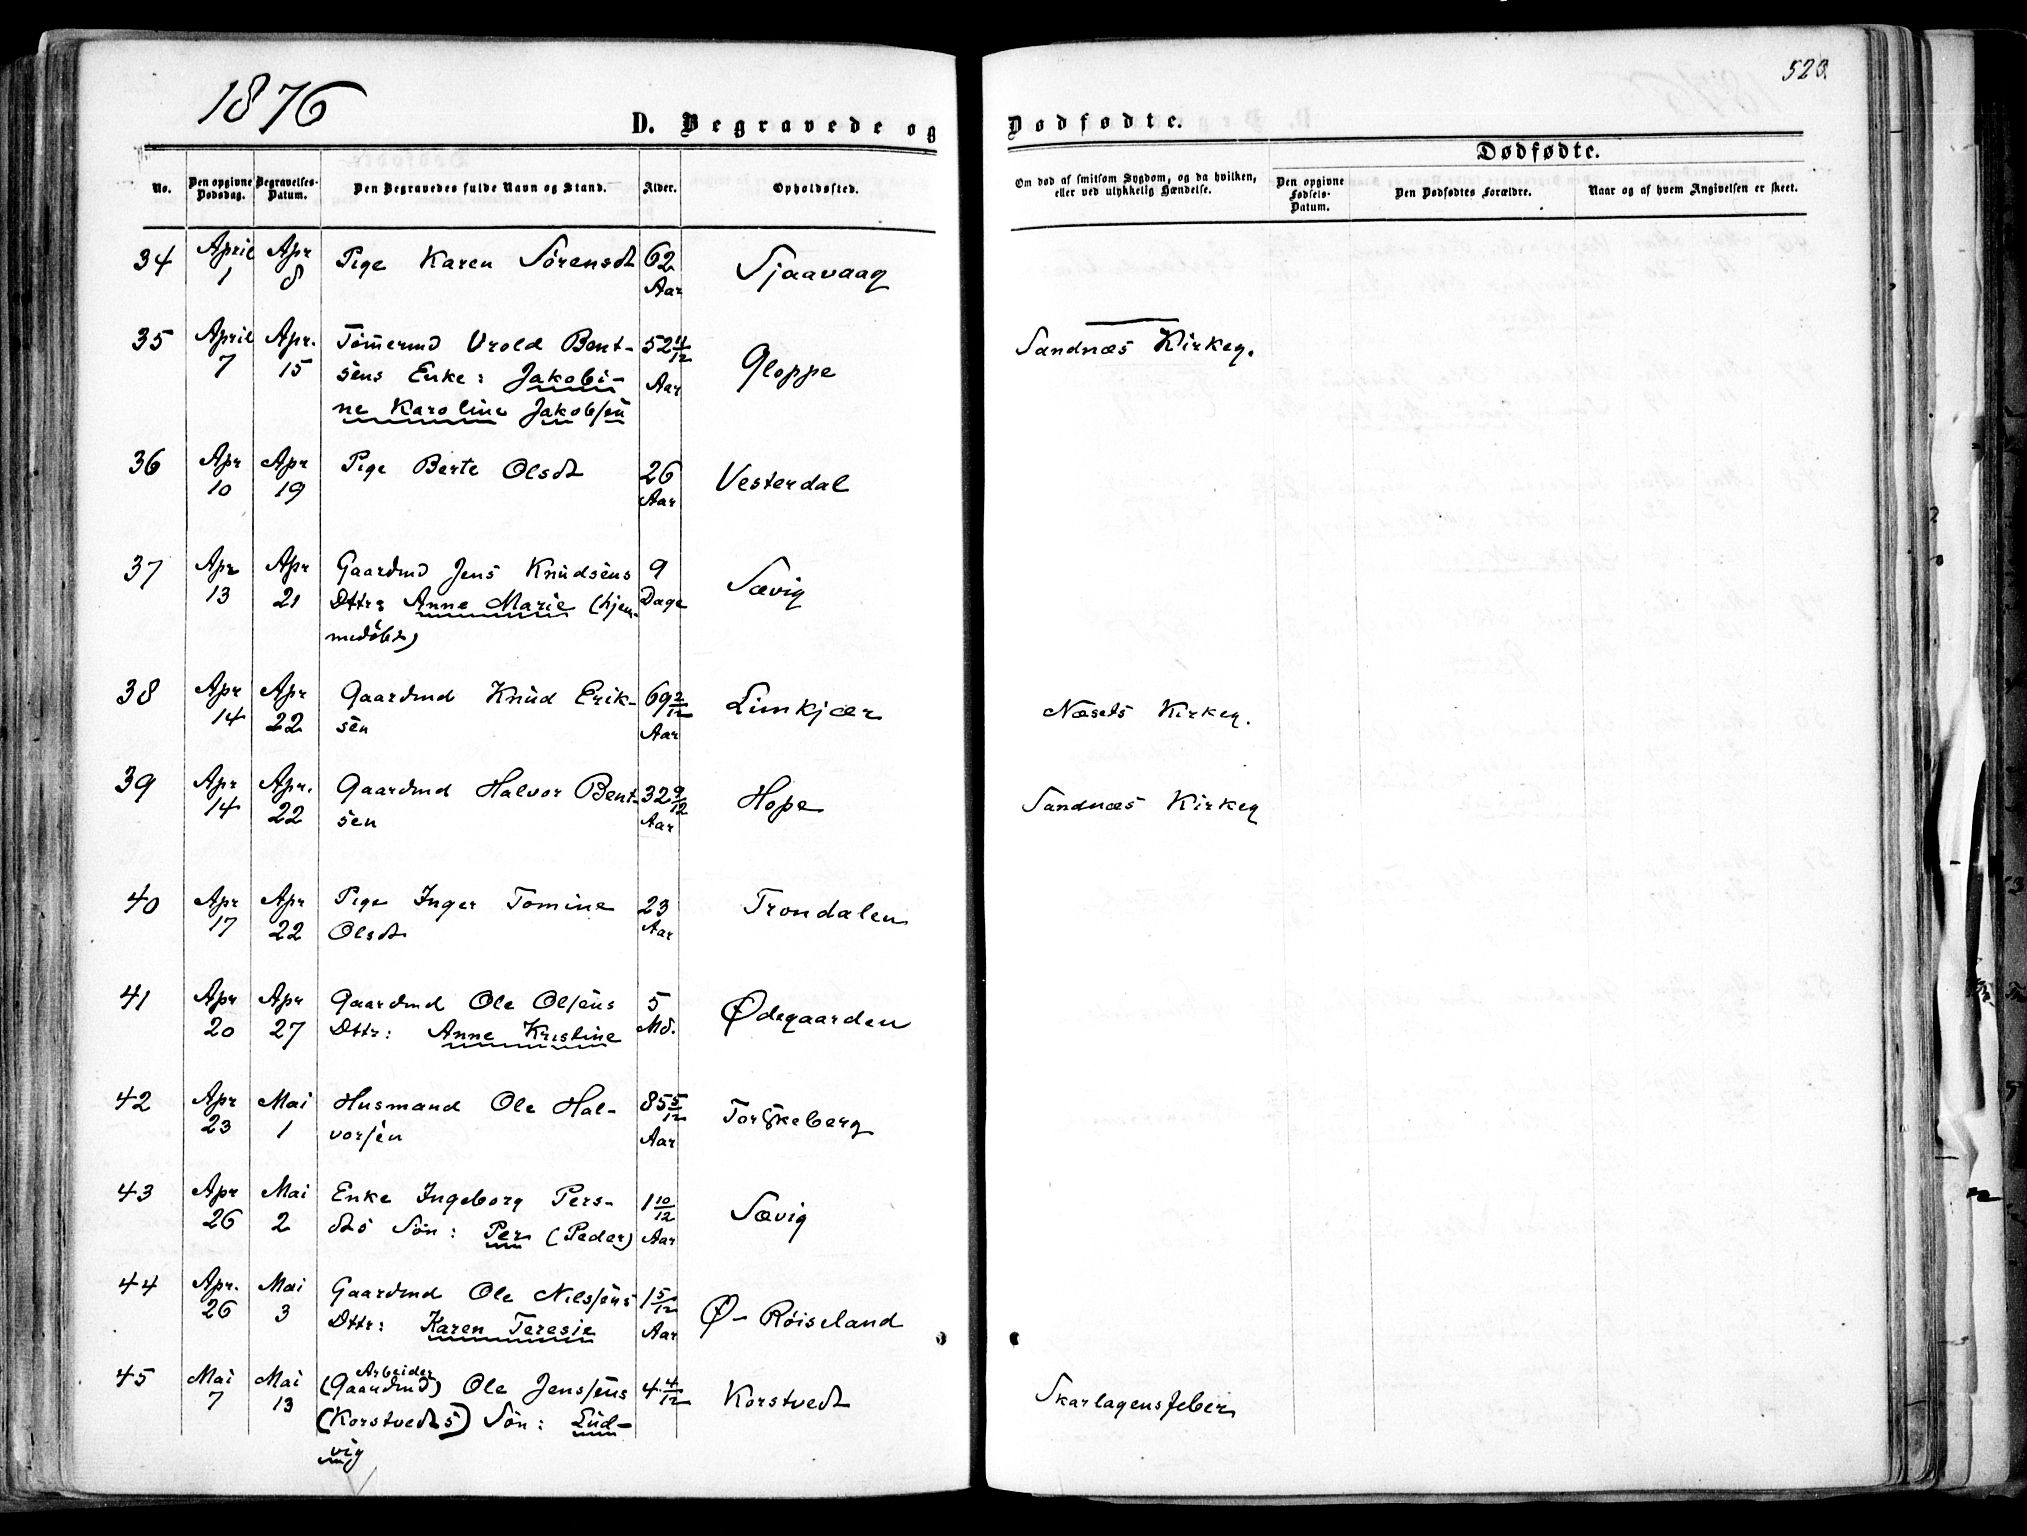 1876
523.
D. Begravede og
Dødfødte.
Dødfødte.
No.
Den opgivne Dødsdag.
Begravelses-Datum.
Den Begravedes fulde Navn og Stand.
Alder.
Opholdssted.
Om død af smitsom Sygdom, og da hvilken, eller ved ulykkelig Hændelse.
Den opgivne Fødsels-Datum.
Den Dødfødtes Forældre.
Naar og af hvem Angivelsen er skeet.
34 April 1 Apr 8 Pige Karen Sörensdt 62 Aar Sjaavaag
35 April 7 Apr. 15 Tömermd Vrold Bent- 52 11/12 Aar Gloppe Sandnæs Kirkeg.
sens Enke: Jakobi-
ne Karoline Jakobsen
36 Apr 10 Apr 19 Pige Berte Olsdt 26 Aar Vesterdal
37 Apr 13 Apr 21 Gaardmd Jens Knudsens 9 Dage Sævig
Dttr: Anne Marie (hjem-
medöbt)
38 Apr 14 Apr 22 Gaardmd Knud Erik- 69 2/12 Aar Limkjær Næsets Kirkeg.
sen
39 Apr 14 Apr. 22 Gaardmd Halvor Bent- 32 9/12 Aar Hope Sandnæs Kirkeg
sen
40 Apr 17 Apr 22 Pige Inger Tomine 23 Aar Trondalen
Olsdt
41 Apr 20 Apr 27 Gaardmd Ole Olsens 5 Md. Ødegaarden
Dttr: Anne Kristine
42 Apr 23 Mai 1 Husmand Ole Hal- 85 5/12 Aar Torskeberg
vorsen
43 Apr 26 Mai 2 Enke Ingeborg Pers- 1 10/12 Aar Sævig
dts Sön: Per (Peder)
44 Apr. 26 Mai 3 Gaardmd Ole Nilsens 1 5/12 Aar Ø- Röiseland
Dttr: Karen Teresie
Arbeider
45 Mai 7 Mai 13 (Gaardmd) Ole Jensens 4 4/12 Korstvedt Skarlagensfeber
(Korstvedts) Sön: Lud-
vig